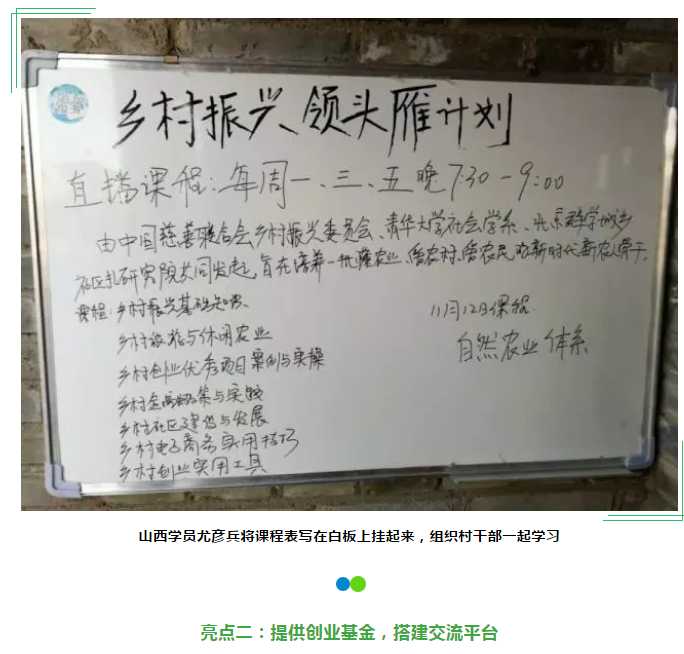 乡村振兴、领头雁计划
直播课程:每周一、三、五晚7:30-9:00
由中国慈善联合会乡村振兴委员会、清华大学社会学系、北京 城乡
社区 研究院共同发起,旨在培养一批懂农业、信农村、信农民的新时代新农人骨干。
课程:乡村振兴基础知识、
乡村旅游与休闲农业
乡村创业优秀项目案例与实操
乡村金融政策与实践
乡村社区建设与发展
乡村电子商务实用技巧
乡村创业实用工具
11月12日课程
自然农业体系
山西学员尤彦兵将课程表写在白板上挂起来,组织村干部一起学习
亮点二:提供创业基金,搭建交流平台